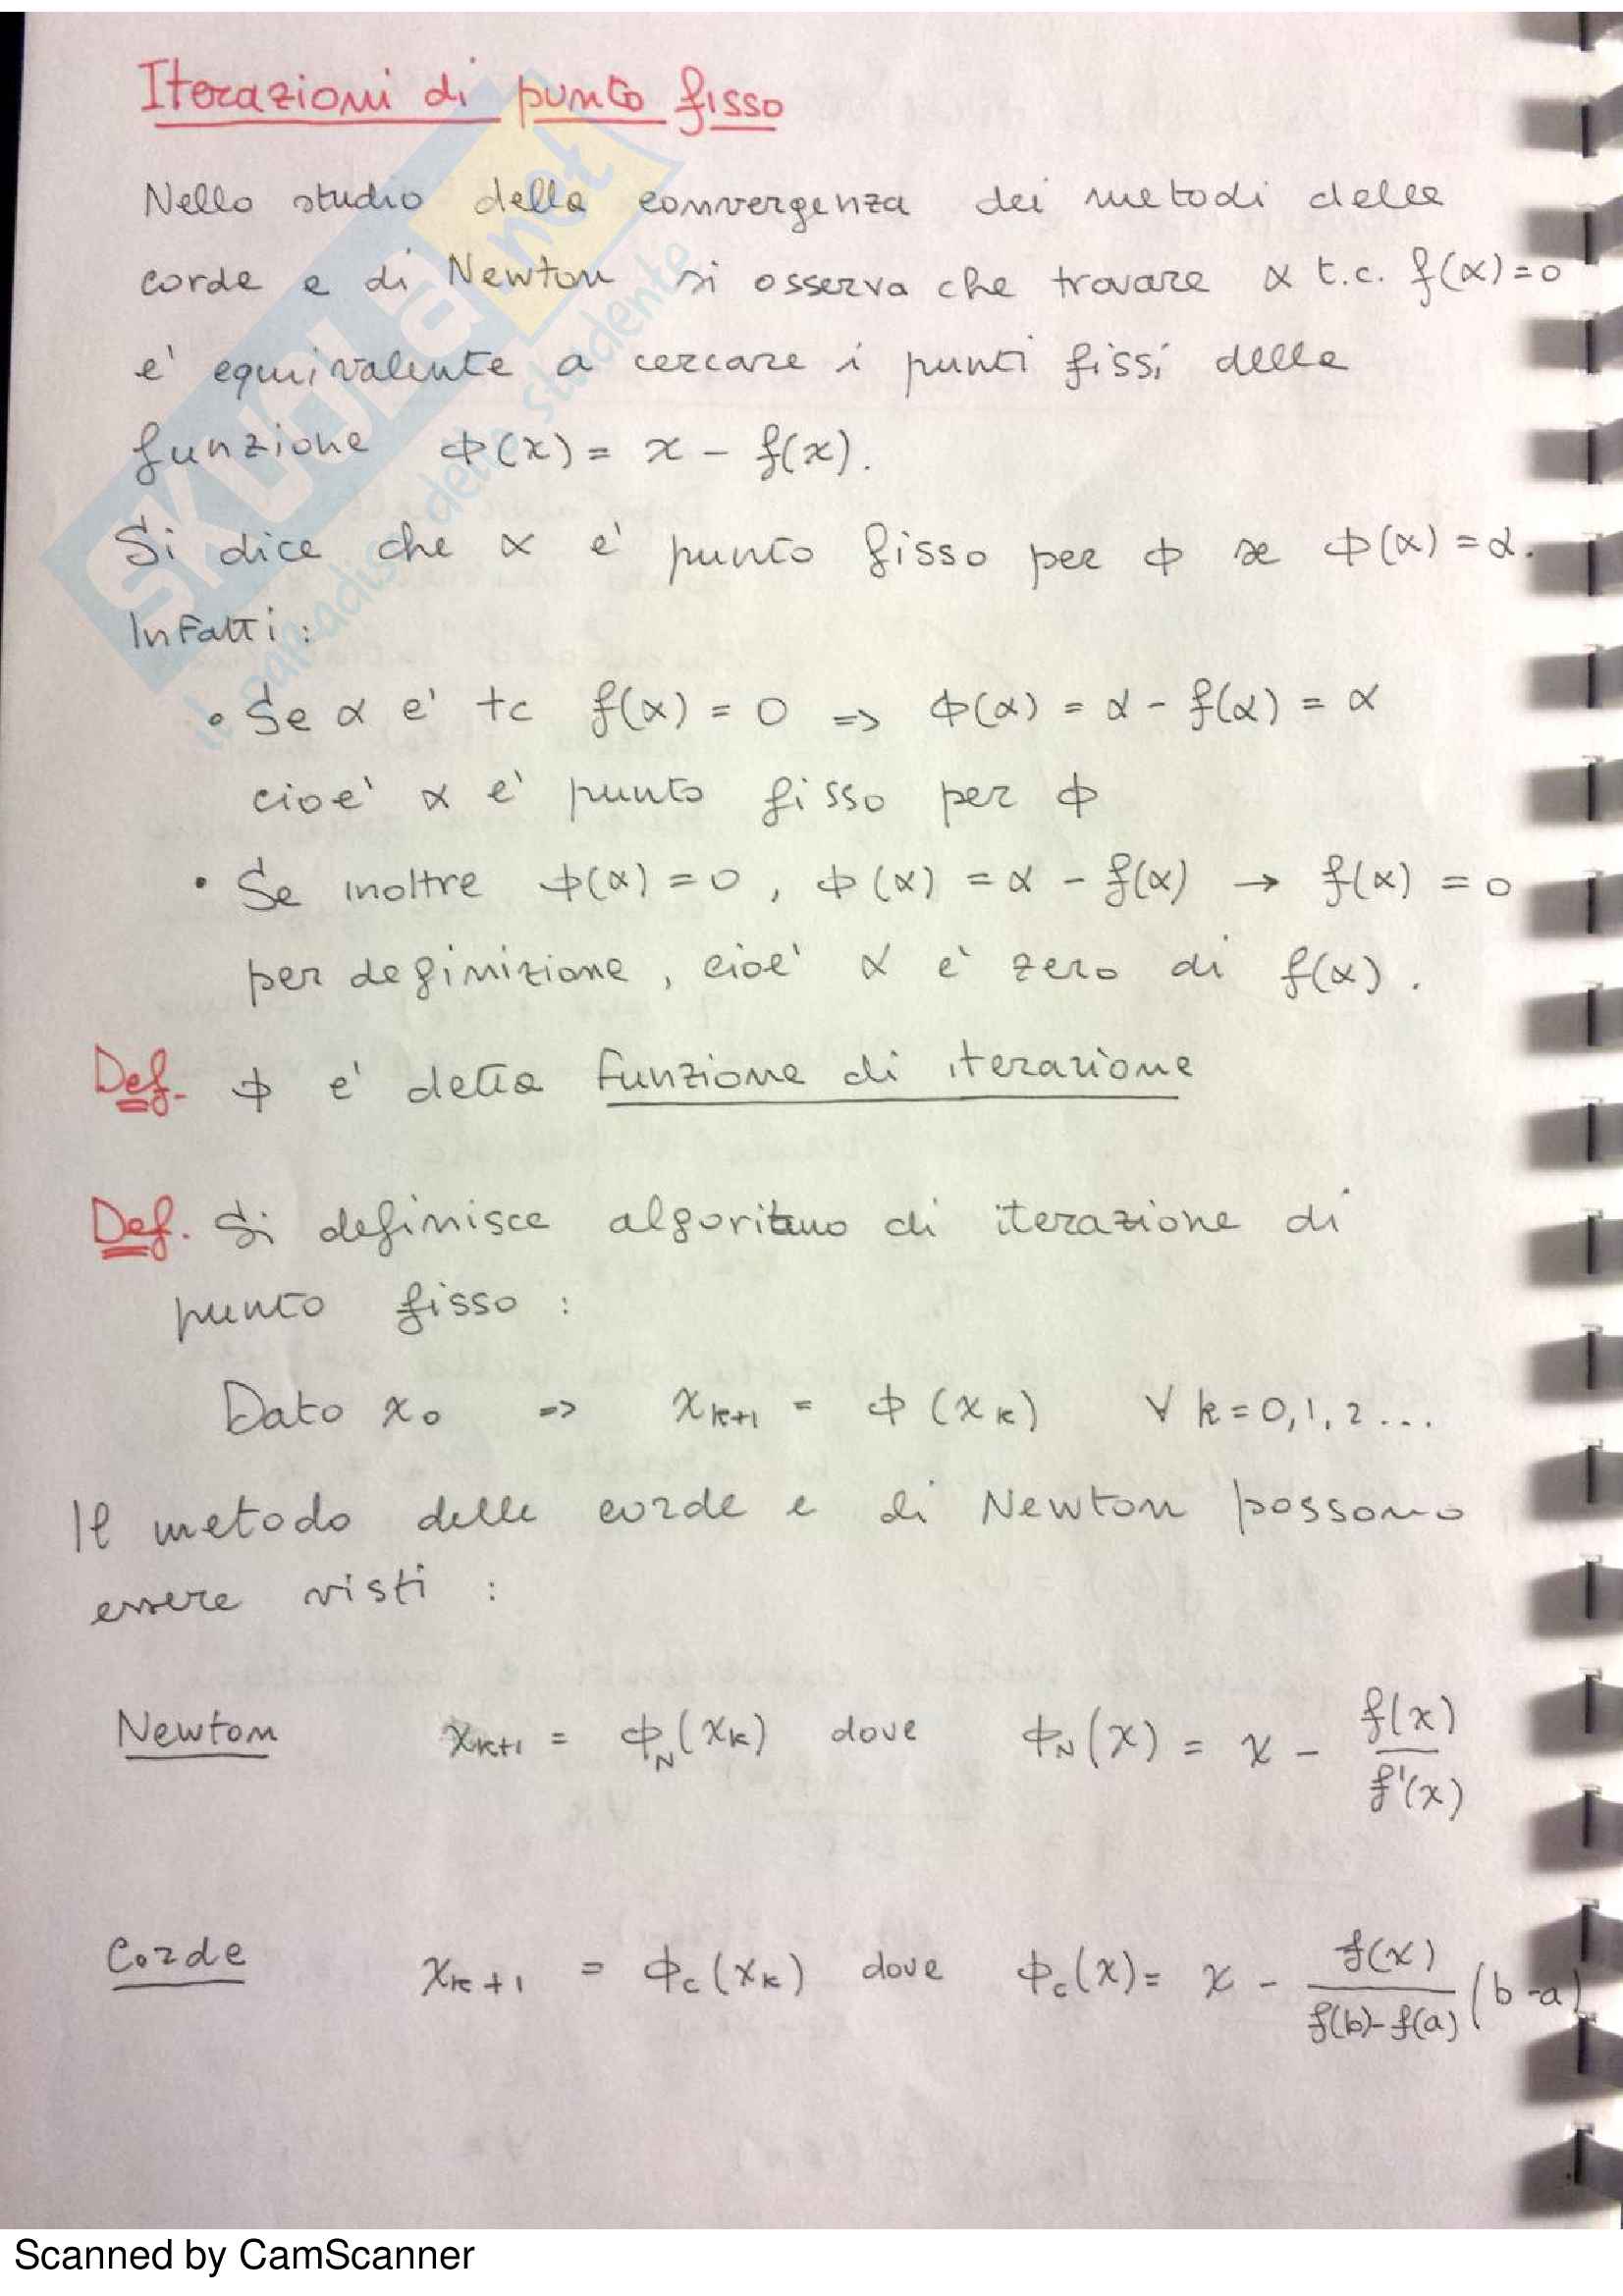 Iterazioni di punto fisso
Nello studio della convergenza dei metodi delle
corde e di Newton si osserva che trovare α t.c. f(α)=0
e' equivalente a cercare i punti fissi della
funzione ϕ(x) = x - f(x).
Si dice che α e' punto fisso per ϕ se ϕ(α) = α.
Infatti:
• Se α e' tc f(α) = 0 => ϕ(α) = α - f(α) = α
cioe' α e' punto fisso per ϕ
• Se inoltre ϕ(α) = 0, ϕ(α) = α - f(α) → f(α) = 0
per definizione, cioe' α e' zero di f(α).
Def. ϕ e' detta funzione di iterazione
Def. Si definisce algoritmo di iterazione di
punto fisso :
Dato x₀ => xₖ₊₁ = ϕ(xₖ) ∀ k = 0, 1, 2 ...
Il metodo delle corde e di Newton possono
essere visti :
Newton xₖ₊₁ = ϕ_N(xₖ) dove ϕ_N(x) = x - f(x)/f'(x)
Corde xₖ₊₁ = ϕ_c(xₖ) dove ϕ_c(x) = x - f(x)/(f(b)-f(a)) (b-a)
SKUOLA.net
il paradiso dello studente
Scanned by CamScanner